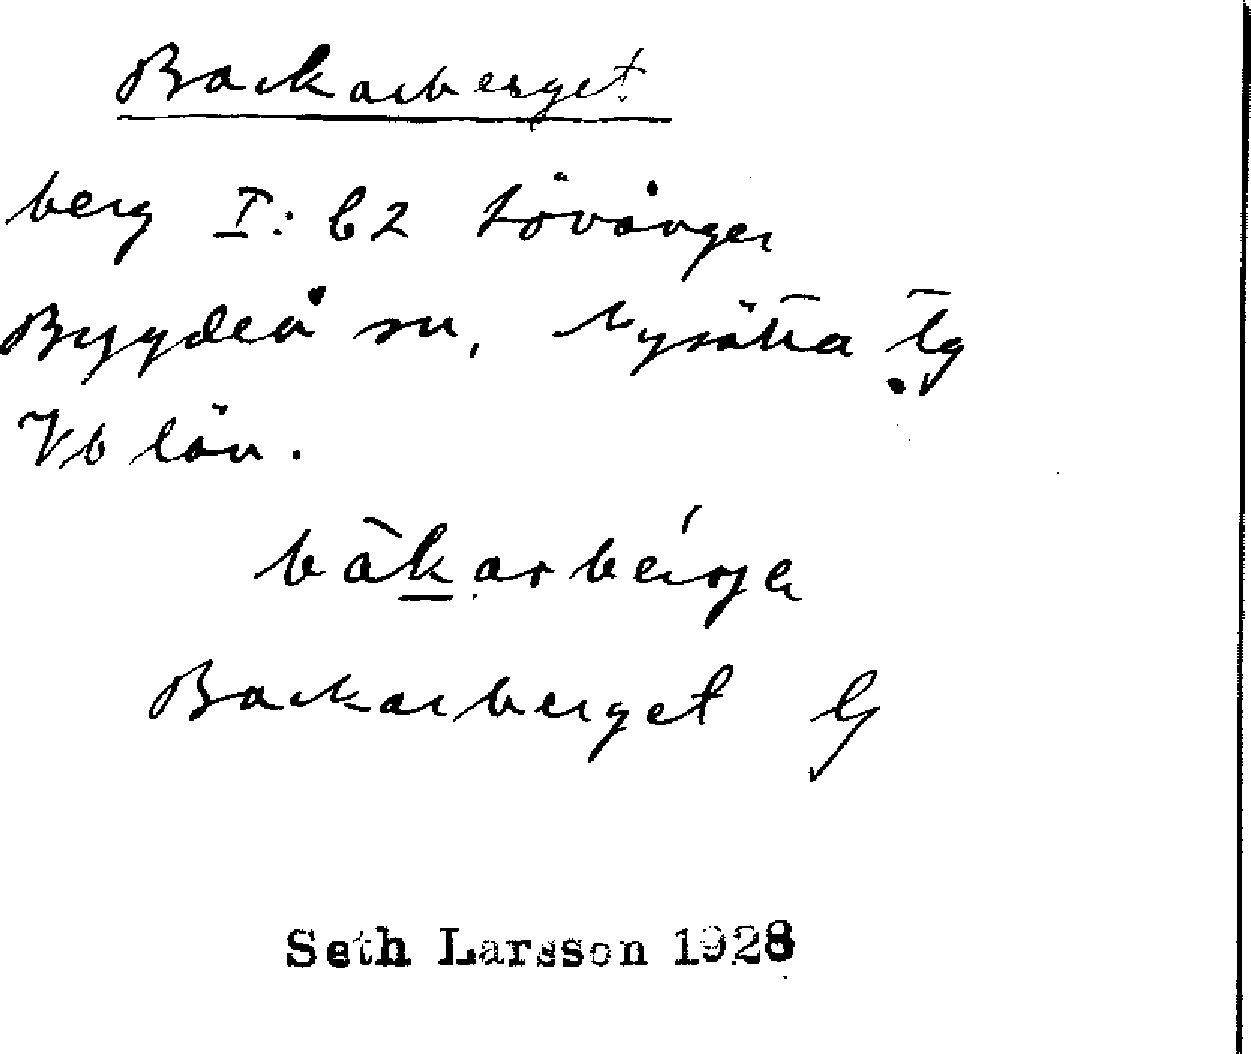 Backarberget
berg I: b2 Lövånger
Bygdeå sn, Nysätra tg
Vb län.
bàkarbérje
Backarberget G
Seth Larsson 1928